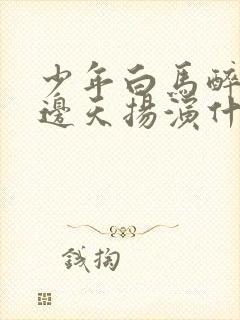 少年白馬醉
邊天揚演什
錢掏